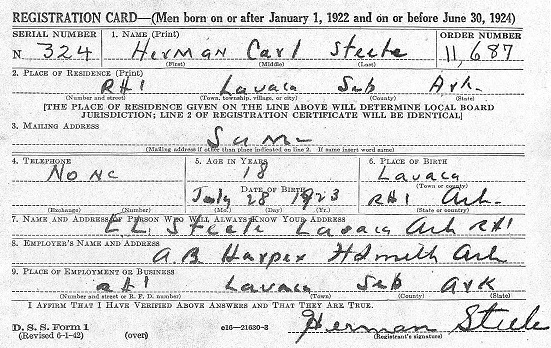 REGISTRATION CARD—(Men born on or after January 1, 1922 and on or before June 30, 1924)
SERIAL NUMBER 1. NAME (Print) ORDER NUMBER
N 324 Herman Carl Steele 11,687
(First) (Middle) (Last)
2. PLACE OF RESIDENCE (Print)
R#1 Lavaca Seb Ark.
(Number and street) (Town, township, village, or city) (County) (State)
[THE PLACE OF RESIDENCE GIVEN ON THE LINE ABOVE WILL DETERMINE LOCAL BOARD
JURISDICTION; LINE 2 OF REGISTRATION CERTIFICATE WILL BE IDENTICAL]
3. MAILING ADDRESS
Same
(Mailing address if other than place indicated on line 2. If same insert word same)
4. TELEPHONE 5. AGE IN YEARS 6. PLACE OF BIRTH
None 18 Lavaca
DATE OF BIRTH (Town or county)
July 28 1923 R#1 Ark.
(Exchange) (Number) (Mo.) (Day) (Yr.) (State or country)
7. NAME AND ADDRESS OF PERSON WHO WILL ALWAYS KNOW YOUR ADDRESS
E.L. Steele Lavaca Ark R#1
8. EMPLOYER'S NAME AND ADDRESS
A.B Harper Ark
9. PLACE OF EMPLOYMENT OR BUSINESS
R#1 Lavaca Seb Ark
(Number and street or R. F. D. number) (Town) (County) (State)
I AFFIRM THAT I HAVE VERIFIED ABOVE ANSWERS AND THAT THEY ARE TRUE.
D. S. S. Form 1
(Revised 6-1-42) (over) e16—21630-2 Herman Steele
(Registrant's signature)